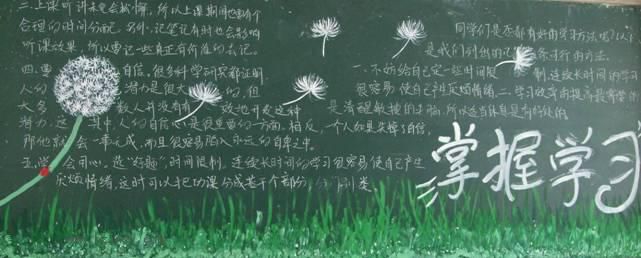 二.上课听讲未免会疲惫,所以上课期间也要有个
合理的时间分配。另外,记笔记有时也会影响
听课效果,所以要记一些真正有价值的去记。
四.要 自信。很多科学研究都证明
人的 潜力是很大的,但
大多 数人并没有有效地开发这种
潜力,这其中,人的自信心是很重要的一方面。相反,一个人如果失掉了自信,
那他就会一事无成,而且很容易陷入永远的自卑之中。
五.学会用心。选“好题”,时间限制,连续长时间的学习很容易使自己产生
厌烦情绪,这时可以把功课分成若干个部分,分门别类
同学们是否都有好的学习方法呢?以下
是我们列出的 条可行的方法。
一.不妨给自己定一些时间限制,连续长时间的学习
很容易使自己产生厌烦情绪 二.学习效率的提高最需要的
是清醒敏捷的头脑,所以适当休息是有好处的
掌握学习